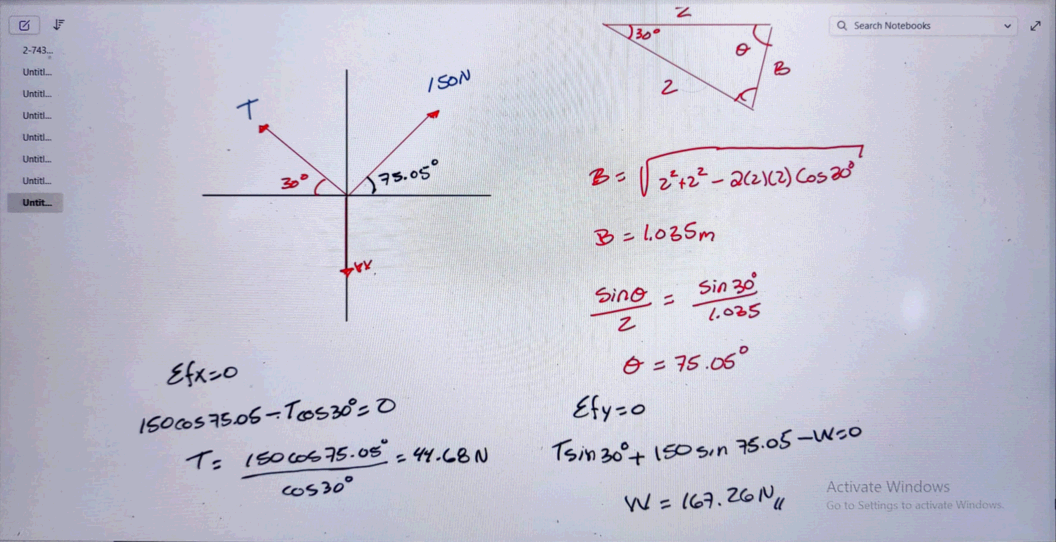 Search Notebooks
2-743...
Untitl...
Untitl...
Untitl...
Untitl...
Untitl...
Untitl...
Untit...
T
150N
30°
75.05°
W
2
30°
θ
B
2
B = √2²+2² - 2(2)(2) Cos 30°
B = 1.035m
Sinθ/2 = Sin 30°/1.035
θ = 75.05°
Σfx=0
150cos75.05 - Tcos30° = 0
T = 150cos75.05°/cos30° = 44.68N
Σfy=0
Tsin30° + 150sin 75.05 - W=0
W = 167.26N//
Activate Windows
Go to Settings to activate Windows.